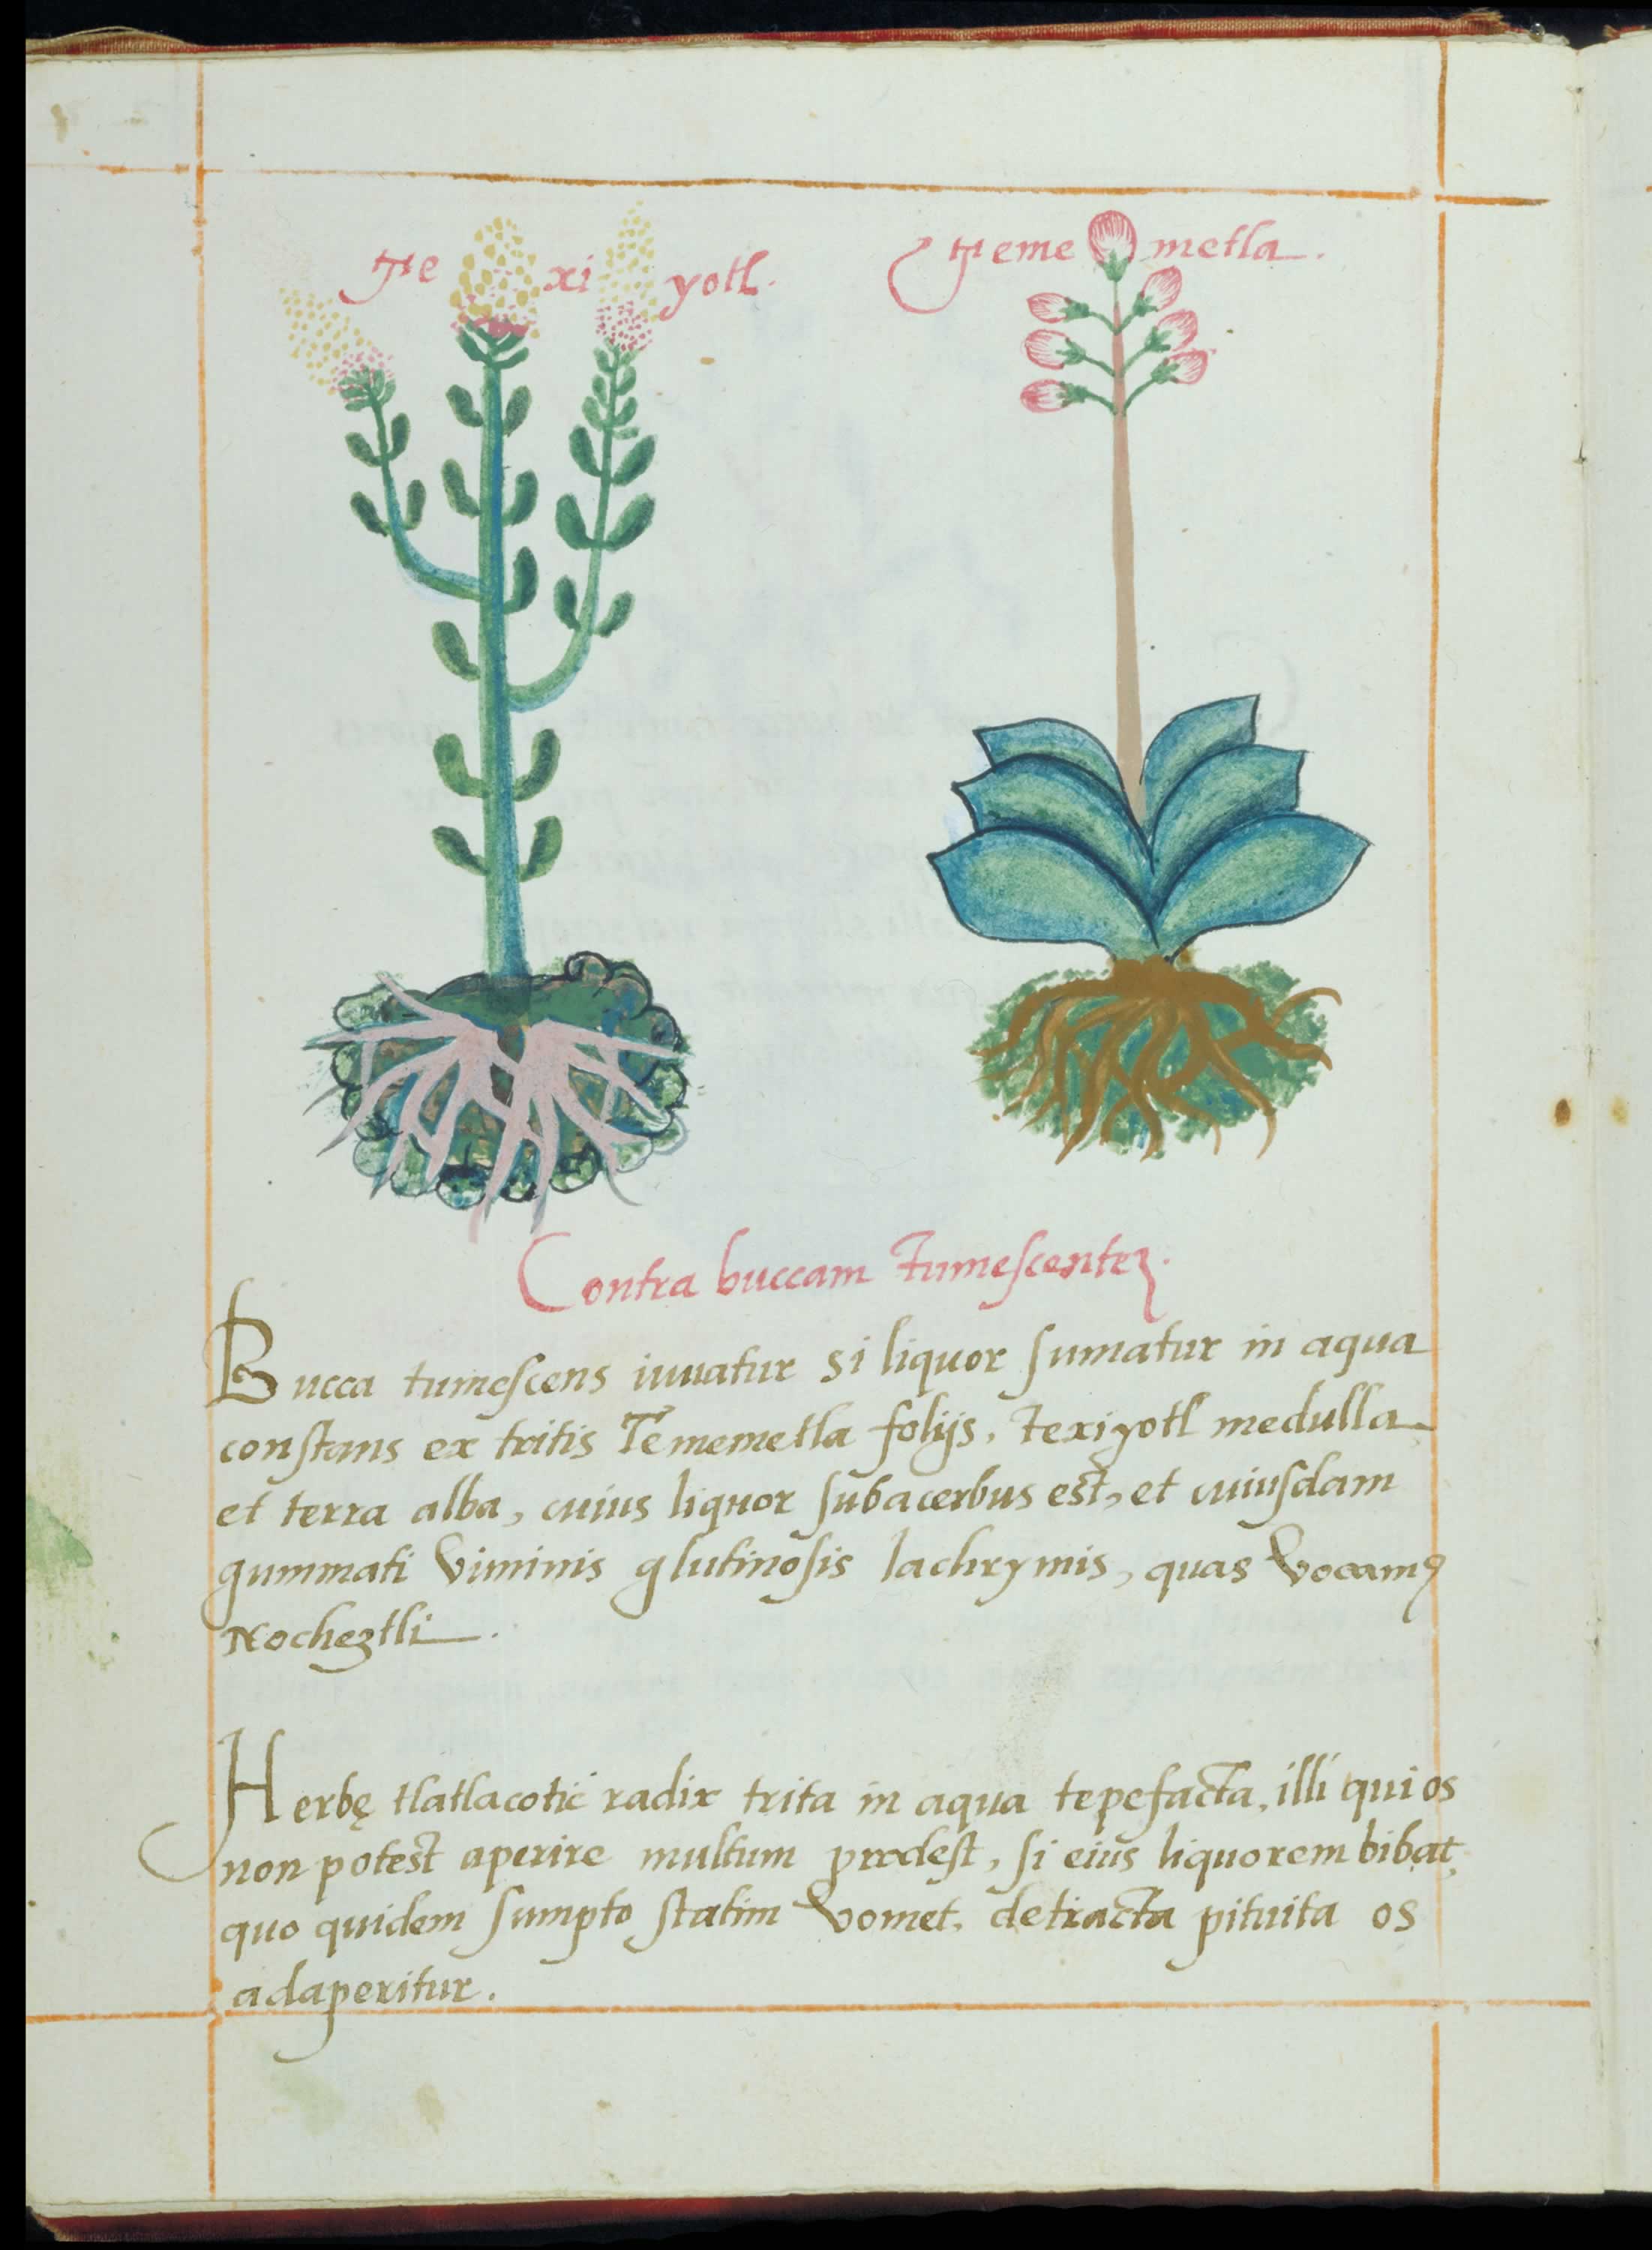 Te xi yotl.
Teme metla.
Contra buccam tumeſcenteʒ.
Bucca tumeſcens iuuatur si liquor ſumatur in aqua
conſtans ex tritis Tememetla folijs, texiyotl medulla
et terra alba, cuius liquor ſubacerbus est, et cuiuſdam
gummati viminis glutinoſis lachrymis, quas vocamꝰ
Nocheztli.
Herbę tlatlacotic radix trita in aqua tepefacta, illi qui os
non potest aperire multum prodeſt, ſi eius liquorem bibat,
quo quidem ſumpto ſtatim vomet, detracta pituita os
adaperitur.